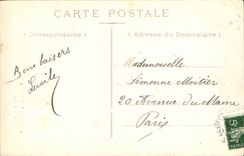 CARTE POSTALE
Correspondance
Adresse du Destinataire
Bons baisers
Lucile
Mademoiselle
Simonne Moitier
20 Avenue du Maine
Paris